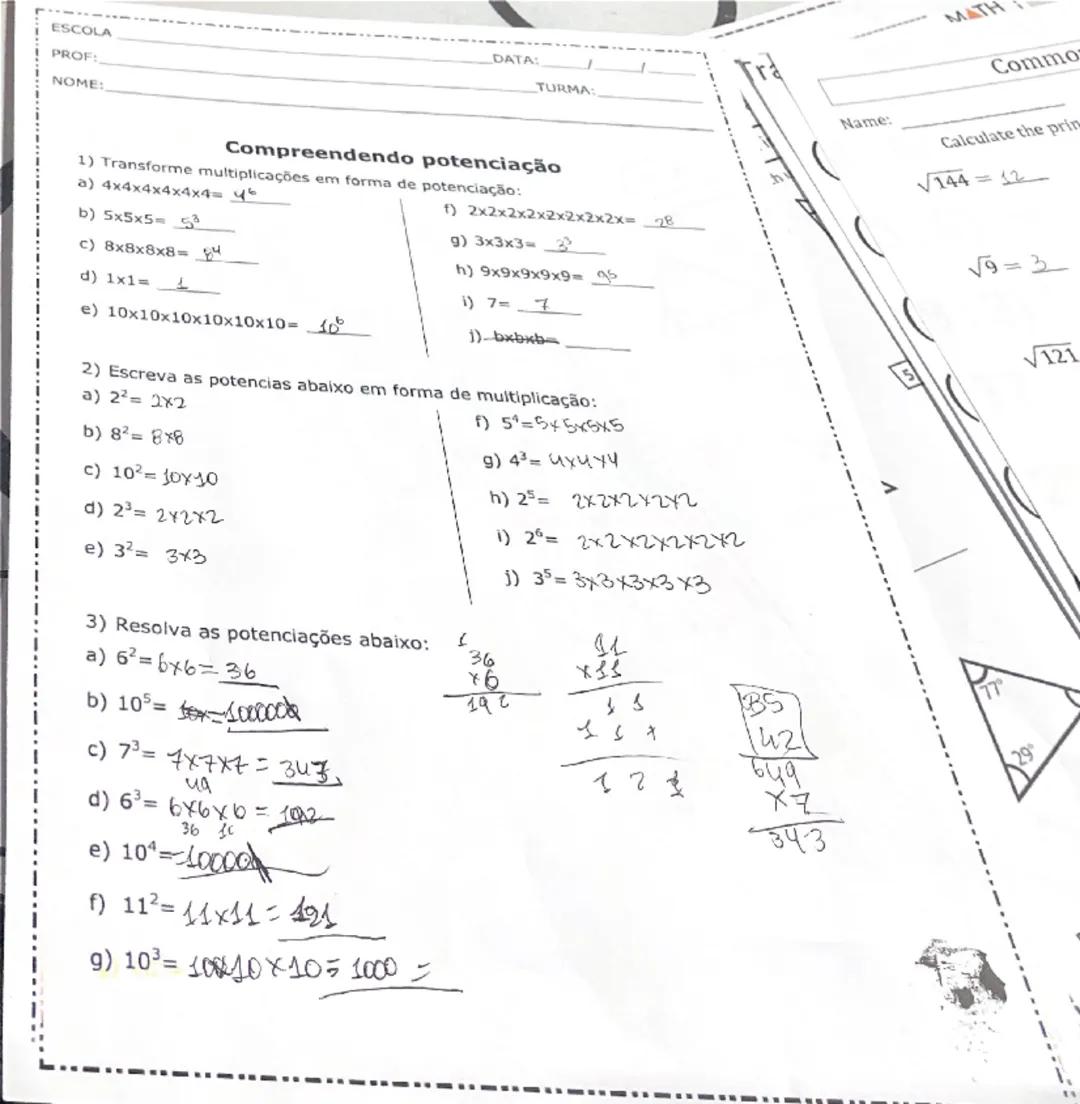 ESCOLA
PROF: DATA: / /
NOME: TURMA:
Compreendendo potenciação
1) Transforme multiplicações em forma de potenciação:
a) 4x4x4x4x4x4= 4⁶
b) 5x5x5= 5³
c) 8x8x8x8= 8⁴
d) 1x1= 1
e) 10x10x10x10x10x10= 10⁶
f) 2x2x2x2x2x2x2x2x= 28
g) 3x3x3= 3³
h) 9x9x9x9x9= 95
i) 7= 7
j) bxbxb=
2) Escreva as potencias abaixo em forma de multiplicação:
a) 2²= 2x2
b) 8²= 8x8
c) 10²= 10x10
d) 2³= 2x2x2
e) 3²= 3x3
f) 5⁴= 5x5x5x5
g) 4³= 4x4x4
h) 2⁵= 2x2x2x2x2
i) 2⁶= 2x2x2x2x2x2
j) 3⁵= 3x3x3x3x3
3) Resolva as potenciações abaixo:
a) 6²= 6x6= 36
b) 10⁵=
c) 7³= 7x7x7= 343
49
d) 6³= 6x6x6=
36
e) 10⁴=
f) 11²= 11x11= 121
g) 10³= 10x10x10= 1000 =
1
36
x6
19
11
x11
1 1
1 1 x
1 2 1
35
42
649
x7
343
MATH
Commo
Name:
Calculate the prin
√144 = 12
√9 = 3
√121
5
77°
29°